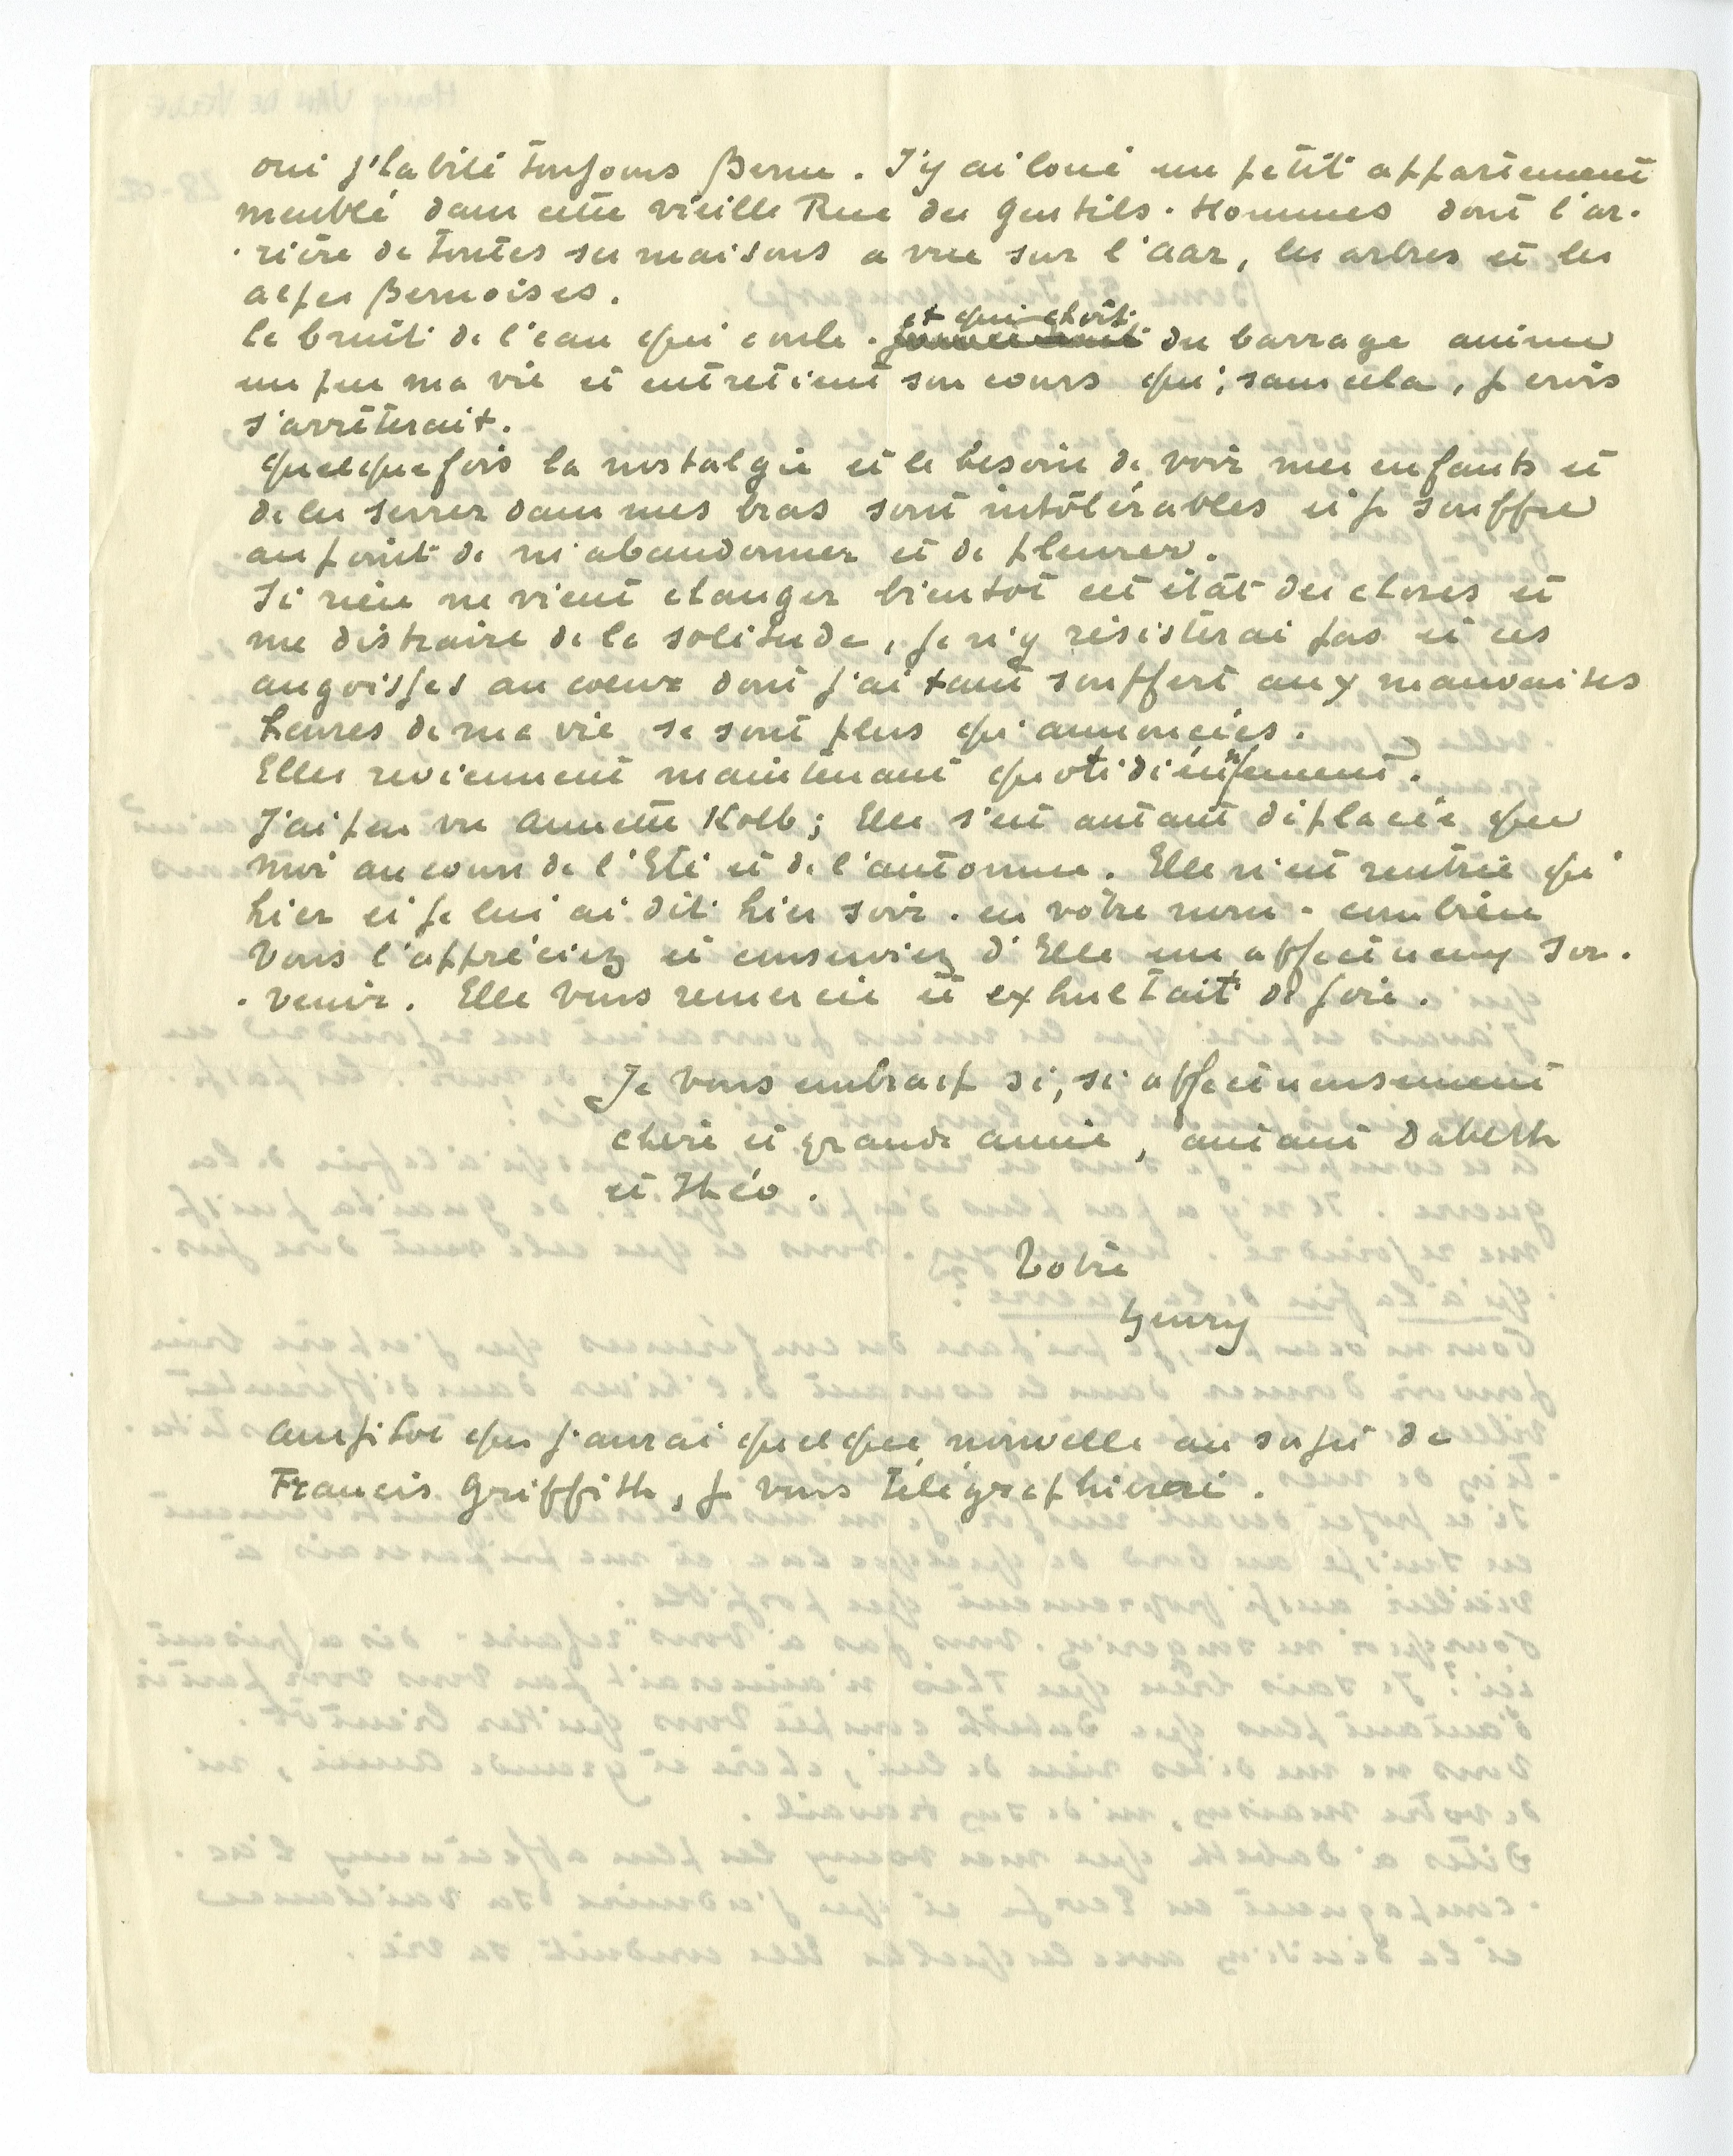 oui j'habite toujours Berne. J'y ai loué un petit appartement
meublé dans cette vieille Rue des Gentils-Hommes dont l'ar-
-rière de toutes ses maisons a vue sur l'Aar, les arbres et les
alpes Bernoises.
et qui choit
le bruit de l'eau qui coule - du barrage anime
un peu ma vie et entretient son cours qui, sans cela, je crois
s'arrêterait.
quelquefois la nostalgie et le besoin de voir mes enfants et
de les serrer dans mes bras sont intolérables et je souffre
au point de m'abandonner et de pleurer.
Si rien ne vient changer bientôt cet état des choses et
me distraire de la solitude, je n'y résisterai pas et ces
angoisses au coeur dont j'ai tant souffert aux mauvaises
heures de ma vie se sont plus qu'annoncées.
Elles reviennent maintenant quotidiennement.
J'ai peu vu Annette Kolb; Elle s'est autant déplacée que
moi au cours de l'Eté et de l'automne. Elle n'est rentrée qu'
hier et je lui ai dit hier soir - en votre nom - combien
vous l'appréciez et conserviez d'Elle un affectueux sou-
-venir. Elle vous remercie et exhultait de joie.
Je vous embrasse si, si affectueusement
chère et grande amie, autant Dabeth
et Théo.
Votre
Henry
aussitôt que j'aurai quelque nouvelle au sujet de
Francis Griffith, je vous télégraphierai.